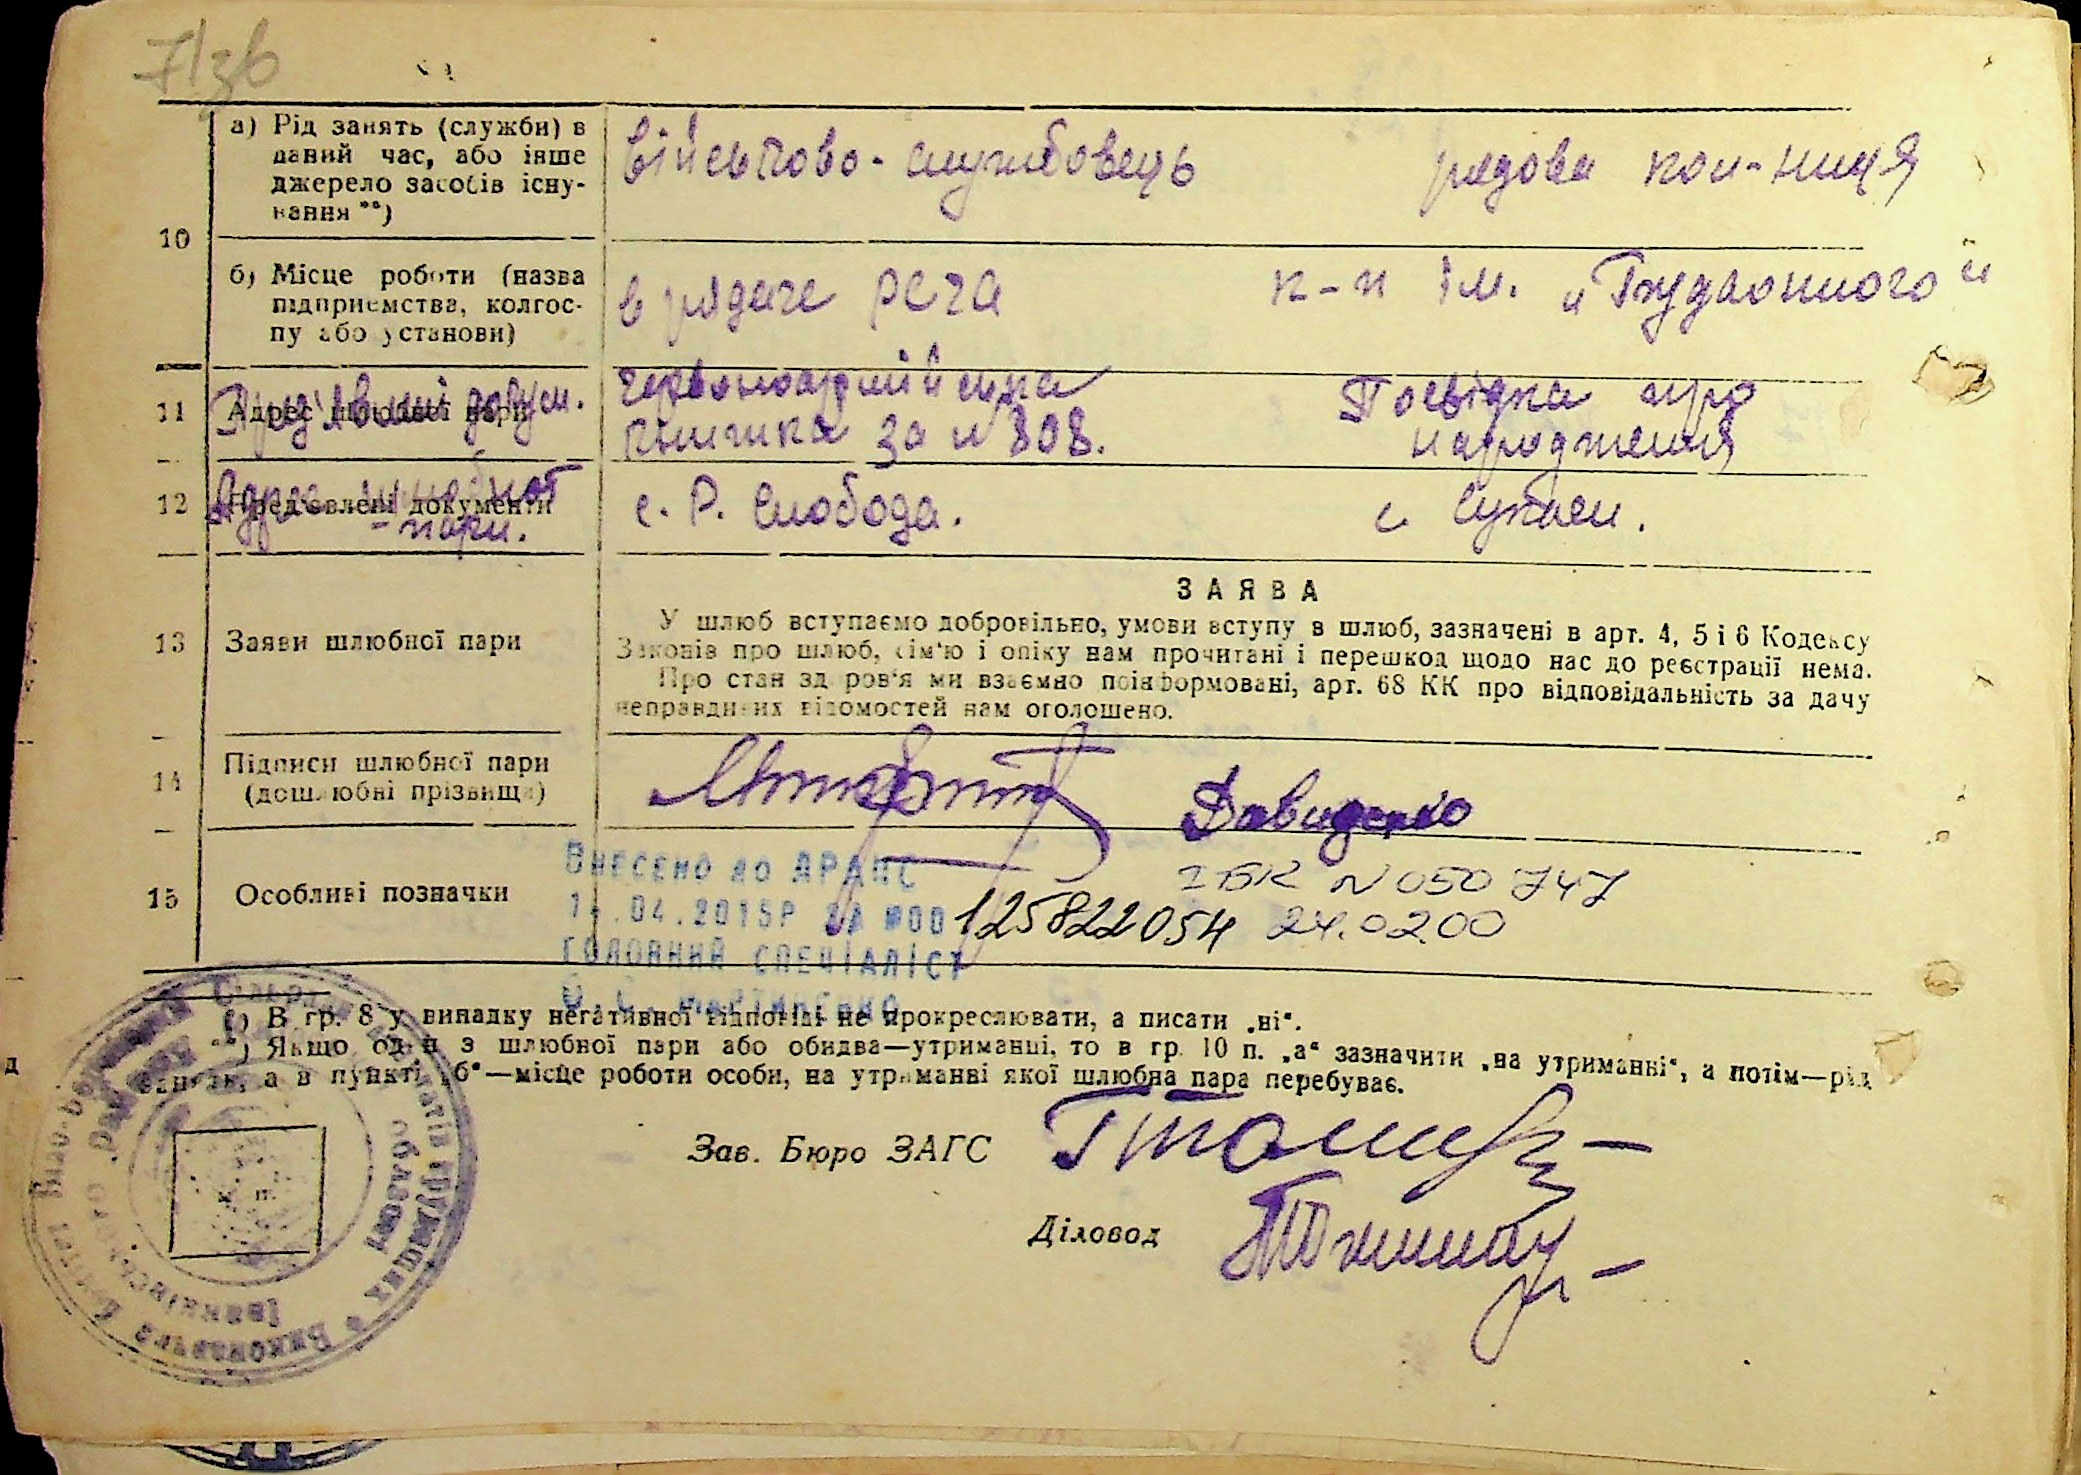 71зв
10
а) Рід занять (служби) в
даний час, або інше
джерело засобів існу-
вання **)
військово-службовець
рядова кол-ниця
б) Місце роботи (назва
підприємства, колгос-
пу або установи)
в рядах РСЧА
к-п ім. „Будьонного"
11
Адрес шлюбної пари
Пред'явлені докум.
червоноармійська
книжка за н 808.
Посвідка про
народження
12
Пред'явлені документи
Адрес шлюбної
-пари.
с. Р. Слобода.
с.
13
Заяви шлюбної пари
ЗАЯВА
У шлюб вступаємо добровільно, умови вступу в шлюб, зазначені в арт. 4, 5 і 6 Кодексу
Законів про шлюб, сім'ю і опіку нам прочитані і перешкод щодо нас до реєстрації нема.
Про стан здоров'я ми взаємно поінформовані, арт. 68 КК про відповідальність за дачу
неправдивих відомостей нам оголошено.
14
Підписи шлюбної пари
(дошлюбні прізвища)
Давиденко
15
Особливі позначки
ВНЕСЕНО ДО ДРАЦС
.04.2015Р ЗА №00 125822054
ГОЛОВНИЙ СПЕЦІАЛІСТ
І БК N 050747
24.02.00
*) В гр. 8 у випадку негативної відповіді не прокреслювати, а писати „ні".
**) Якщо один з шлюбної пари або обидва—утриманці, то в гр. 10 п. „а" зазначити „на утриманні", а потім—рід
занять, а в пункті „б"—місце роботи особи, на утриманні якої шлюбна пара перебуває.
Зав. Бюро ЗАГС
Діловод